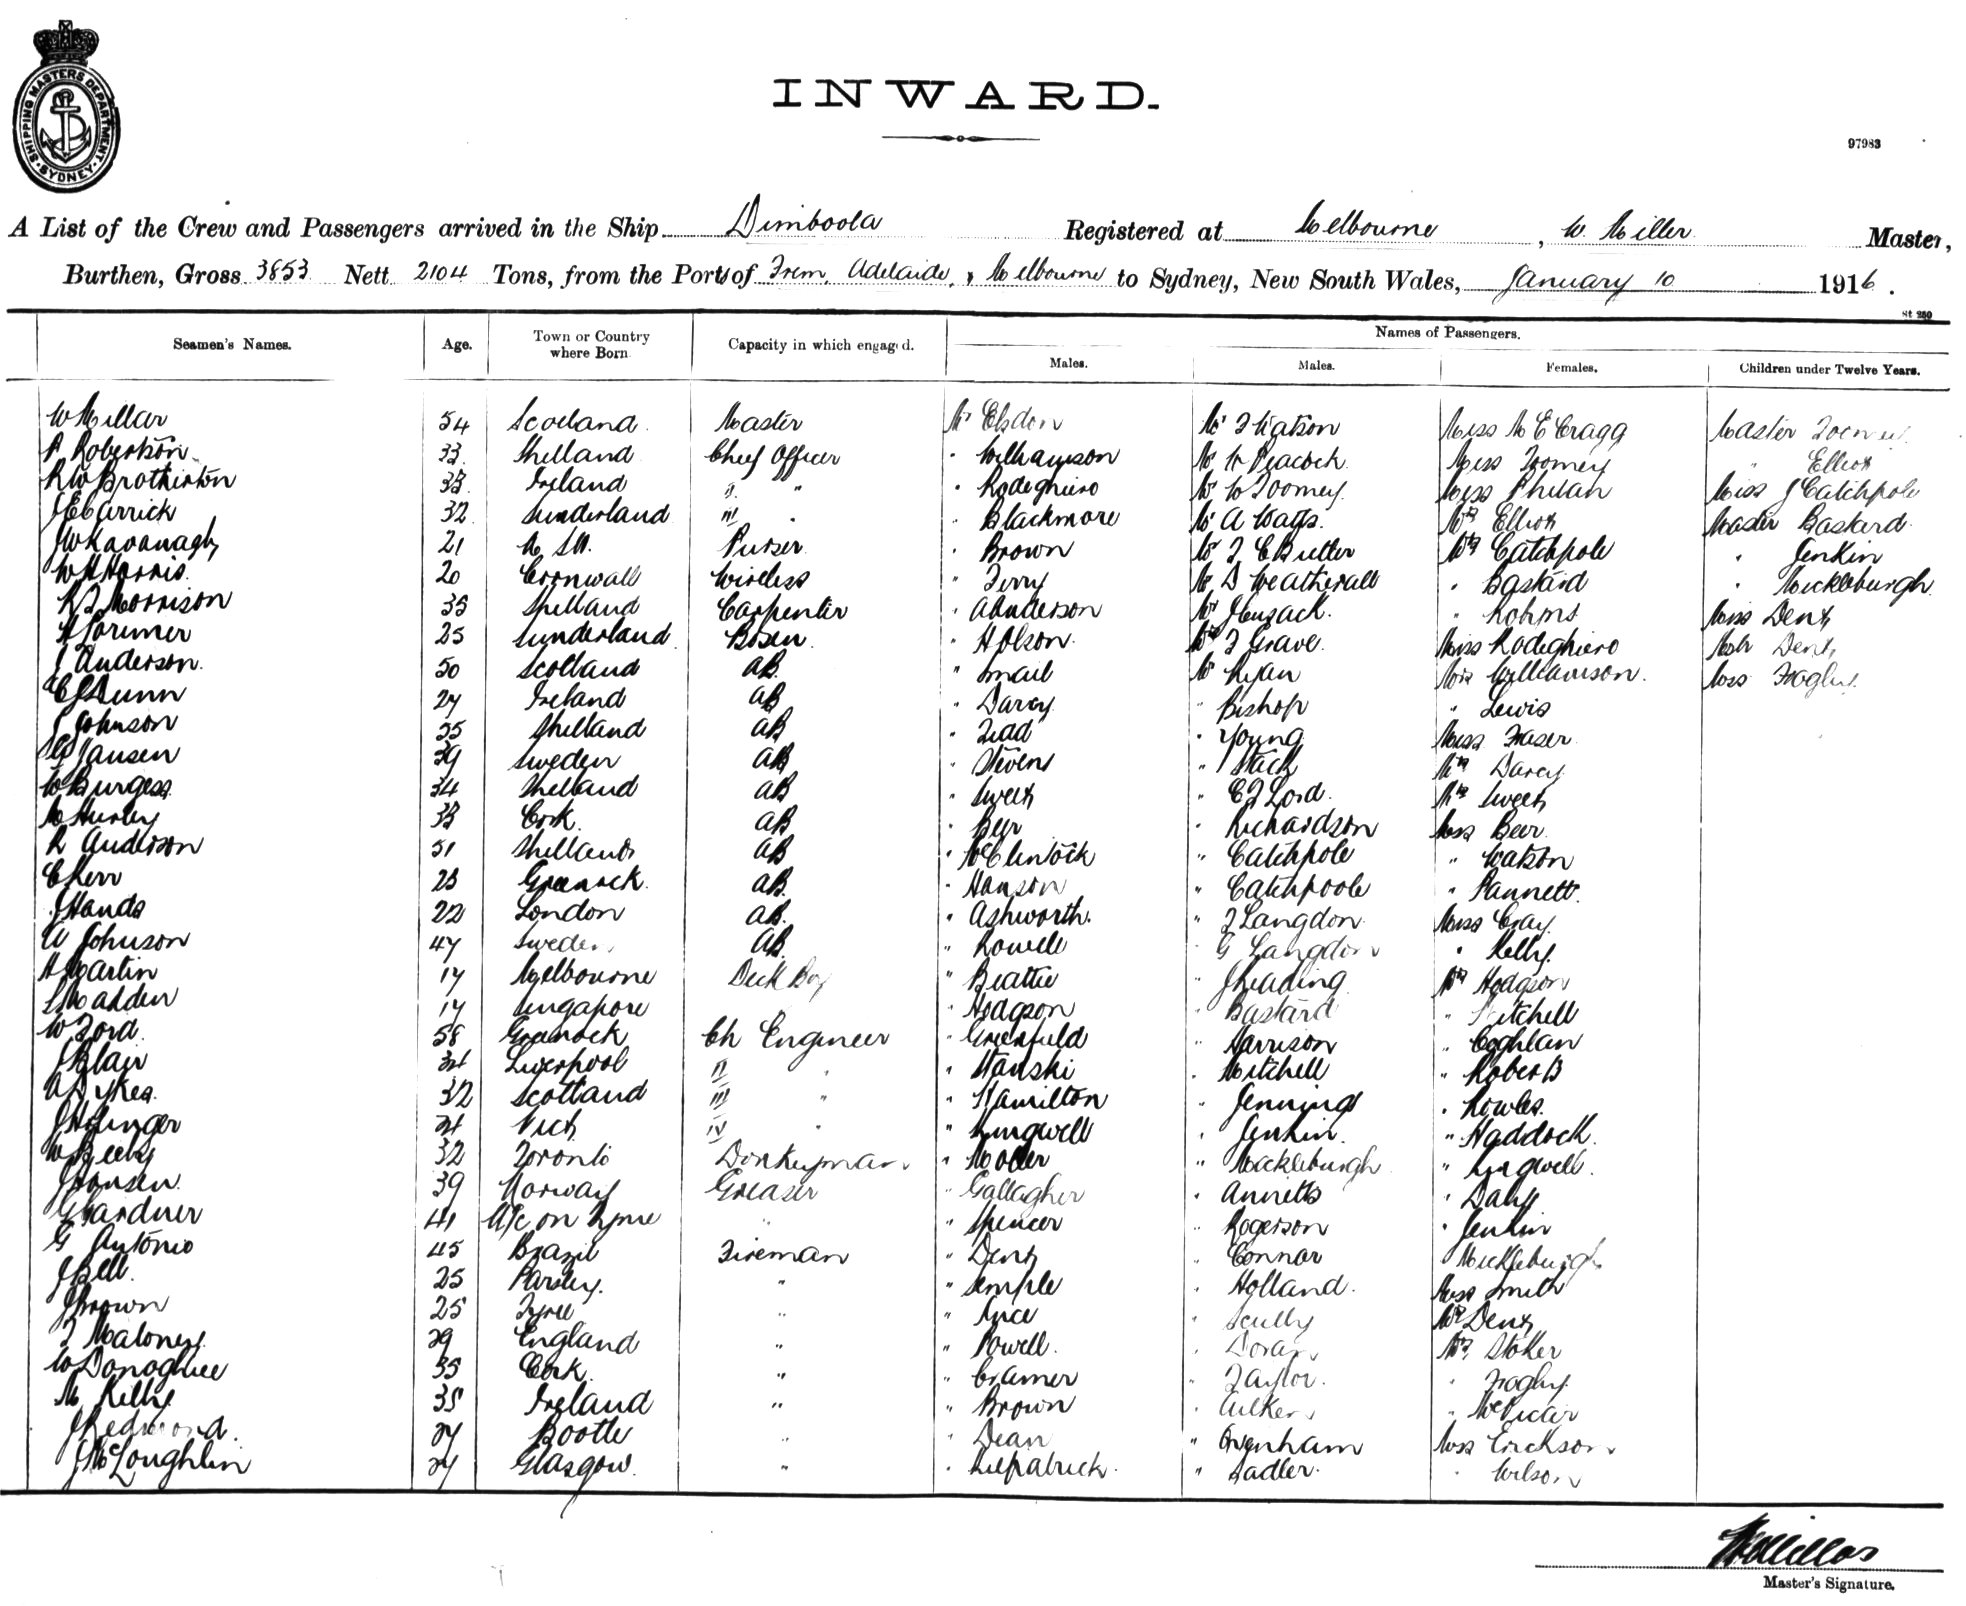 SHIPPING MASTERS DEPARTMENT. SYDNEY
INWARD.
97983
A List of the Crew and Passengers arrived in the Ship Dimboola Registered at Melbourne, W. Miller Master,
Burthen, Gross 3853 Nett 2104 Tons, from the Ports of Frem, Adelaide, & Melbourne to Sydney, New South Wales, January 10 1916.
St 250
Seamen's Names. Age. Town or Country where Born Capacity in which engaged. Names of Passengers.
Males. Males. Females. Children under Twelve Years.
W Millar 54 Scotland Master Mr Elsdon Mr F Watson Miss M E Cragg Master
Robertson 33 Shetland Chief Officer " Williamson Mr W Peacock Miss Toomey " Elliot
R W Brotherton 33 Ireland II " " Rodeghiero Mr W Toomey Miss Phelan Miss J Catchpole
J E Carrick 32 Sunderland III " " Blackmore Mr A Watts Mrs Elliot Master Bastard
J W Kavanagh 21 N.S.W. Purser " Brown Mr F C Butler Mrs Catchpole " Jenkin
W H Harris 20 Cornwall Wireless " Terry Mr D Weatherall " Bastard " Mickleburgh
R J Morrison 35 Shetland Carpenter " A Anderson Mr J Cusack " Miss Dent
H Lorimer 25 Sunderland Bosun " H Olson Grave Miss Rodeghiero Mstr Dent
J Anderson 50 Scotland AB " Smail Mr Ryan Mrs Williamson Miss
Dunn 27 Ireland AB " Darcy " Bishop " Lewis
J Johnson 55 Shetland AB " " Young Miss Fraser
Jansen 39 Sweden AB " Stevens " Stack Mrs Darcy
W Burgess 34 Shetland AB " Sweet " E J Lord Mrs Sweet
M Hurley 33 Cork AB " Beer " Richardson Miss Beer
R Anderson 51 Shetland AB " McClintock " Catchpole " Watson
C Kerr 23 Greenock AB " Hanson " Catchpoole " Pannett
J Hands 22 London AB " Ashworth " J Langdon Miss Gray
A Johnson 47 Sweden AB " Rowell G Langdon " Kelly
H Martin 17 Melbourne Deck Boy " Beattie J Reading Mrs Hodgson
Madden 17 Singapore " Hodgson " Bastard " Mitchell
W Ford 58 Greenock Ch Engineer " Greenfield " Harrison " Coghlan
J Blair 34 Liverpool II " " Stanski " Mitchell " Roberts
A Dykes 32 Scotland III " " Hamilton " Jennings " Rowles
24 Vict IV " " Kingwell " Jenkin " Haddock
32 Toronto Donkeyman " Moller " Mickleburgh " Kingwell
J Hansen 39 Norway Greaser " Gallagher " Annetts " Dahl
G Gardner 41 N/c on Tyne " " Spencer " Rogerson " Jenkin
G Antonio 45 Brazil Fireman " Dent " Connor " Mickleburgh
J Bell 25 Paisley " " Semple " Holland Miss Smith
J Brown 25 " " Rice " Scully Mrs Dent
Maloney 29 England " " Powell " Doran Mrs Stoker
W Donoghue 35 Cork " " Cramer " Taylor "
M Kelly 35 Ireland " " Brown " " McVicar
J Redmond 27 Bootle " " Dean " Ovenham Miss Erickson
J McLoughlin 27 Glasgow " " Kilpatrick " Sadler " Wilson
W Millar
Master's Signature.